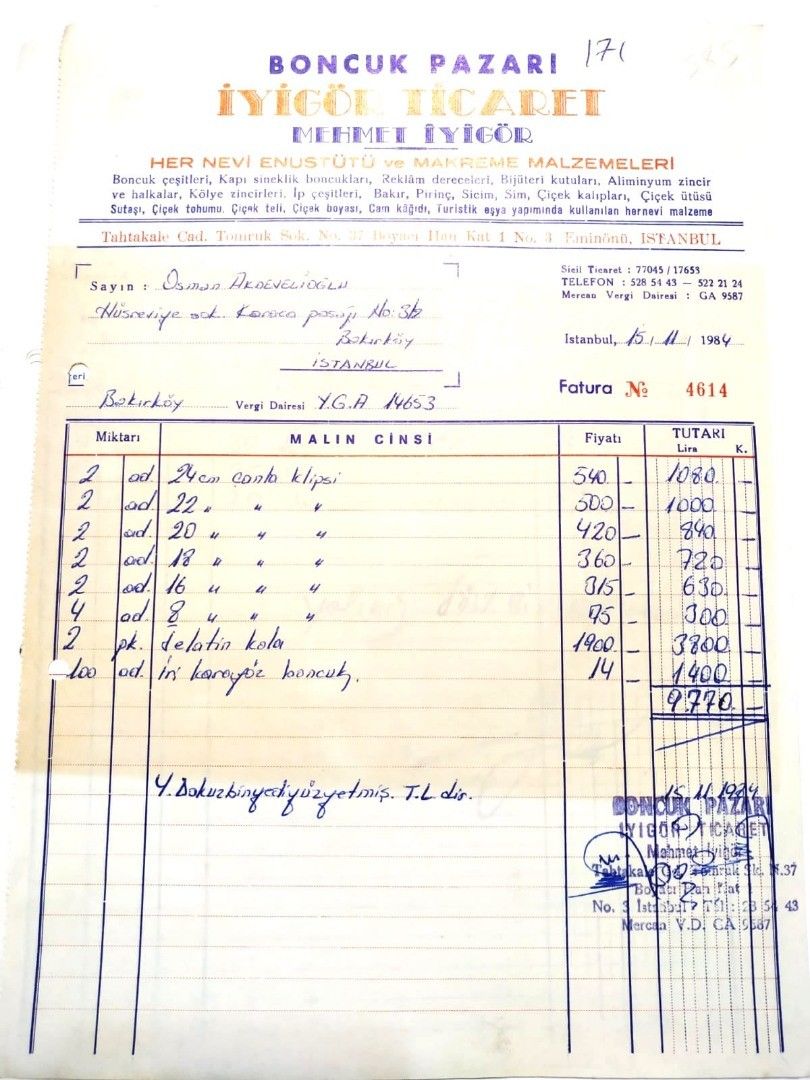 BONCUK PAZARI 171
585
İYİGÖR TİCARET
MEHMET İYİGÖR
HER NEVİ ENUSTÜTÜ ve MAKREME MALZEMELERİ
Boncuk çeşitleri, Kapı sineklik boncukları, Reklâm dereceleri, Bijüteri kutuları, Aliminyum zincir
ve halkalar, Kölye zincirleri. İp çeşitleri, Bakır, Pirinç, Sicim, Sim, Çiçek kalıpları, Çiçek ütüsü
Sutaşı, Çiçek tohumu. Çiçek teli, Çiçek boyası, Cam kâğıdı, Turistik eşya yapımında kullanılan hernevi malzeme
Tahtakale Cad. Tomruk Sok. No. 37 Boyacı Han Kat 1 No. 3 Eminönü, İSTANBUL
Sicil Ticaret : 77045 / 17653
TELEFON : 528 54 43 — 522 21 24
Mercan Vergi Dairesi : GA 9587
Sayın : Osman AKDEVELİOĞLU
Hüsreviye sok. Karaca pasajı No: 3/2
Bakırköy
İSTANBUL
İstanbul, 15 / 11 / 1984
eri
Fatura № 4614
Bakırköy Vergi Dairesi Y.G.A 14653
Miktarı MALIN CİNSİ Fiyatı TUTARI
Lira K.
2 ad. 24 cm çanta klipsi 540 — 1080 —
2 ad. 22 " " " 500 — 1000 —
2 ad. 20 " " " 420 — 840 —
2 ad. 18 " " " 360 — 720 —
2 ad. 16 " " " 315 — 630 —
4 ad. 8 " " " 75 — 300 —
2 pk. Jelatin kola 1900 — 3800 —
100 ad. İri karagöz boncuk. 14 — 1400 —
9.770 —
Y. Dokuzbinyediyüzyetmiş. T.L dir.
15.11.1984
BONCUK PAZARI
İYİGÖR TİCARET
Mehmet İyigör
Tahtakale Cd. Tomruk Sk. N.37
Boyacı Han Kat
No. 3 İstanbul Tel: 28 54 43
Mercan V.D. GA 9587